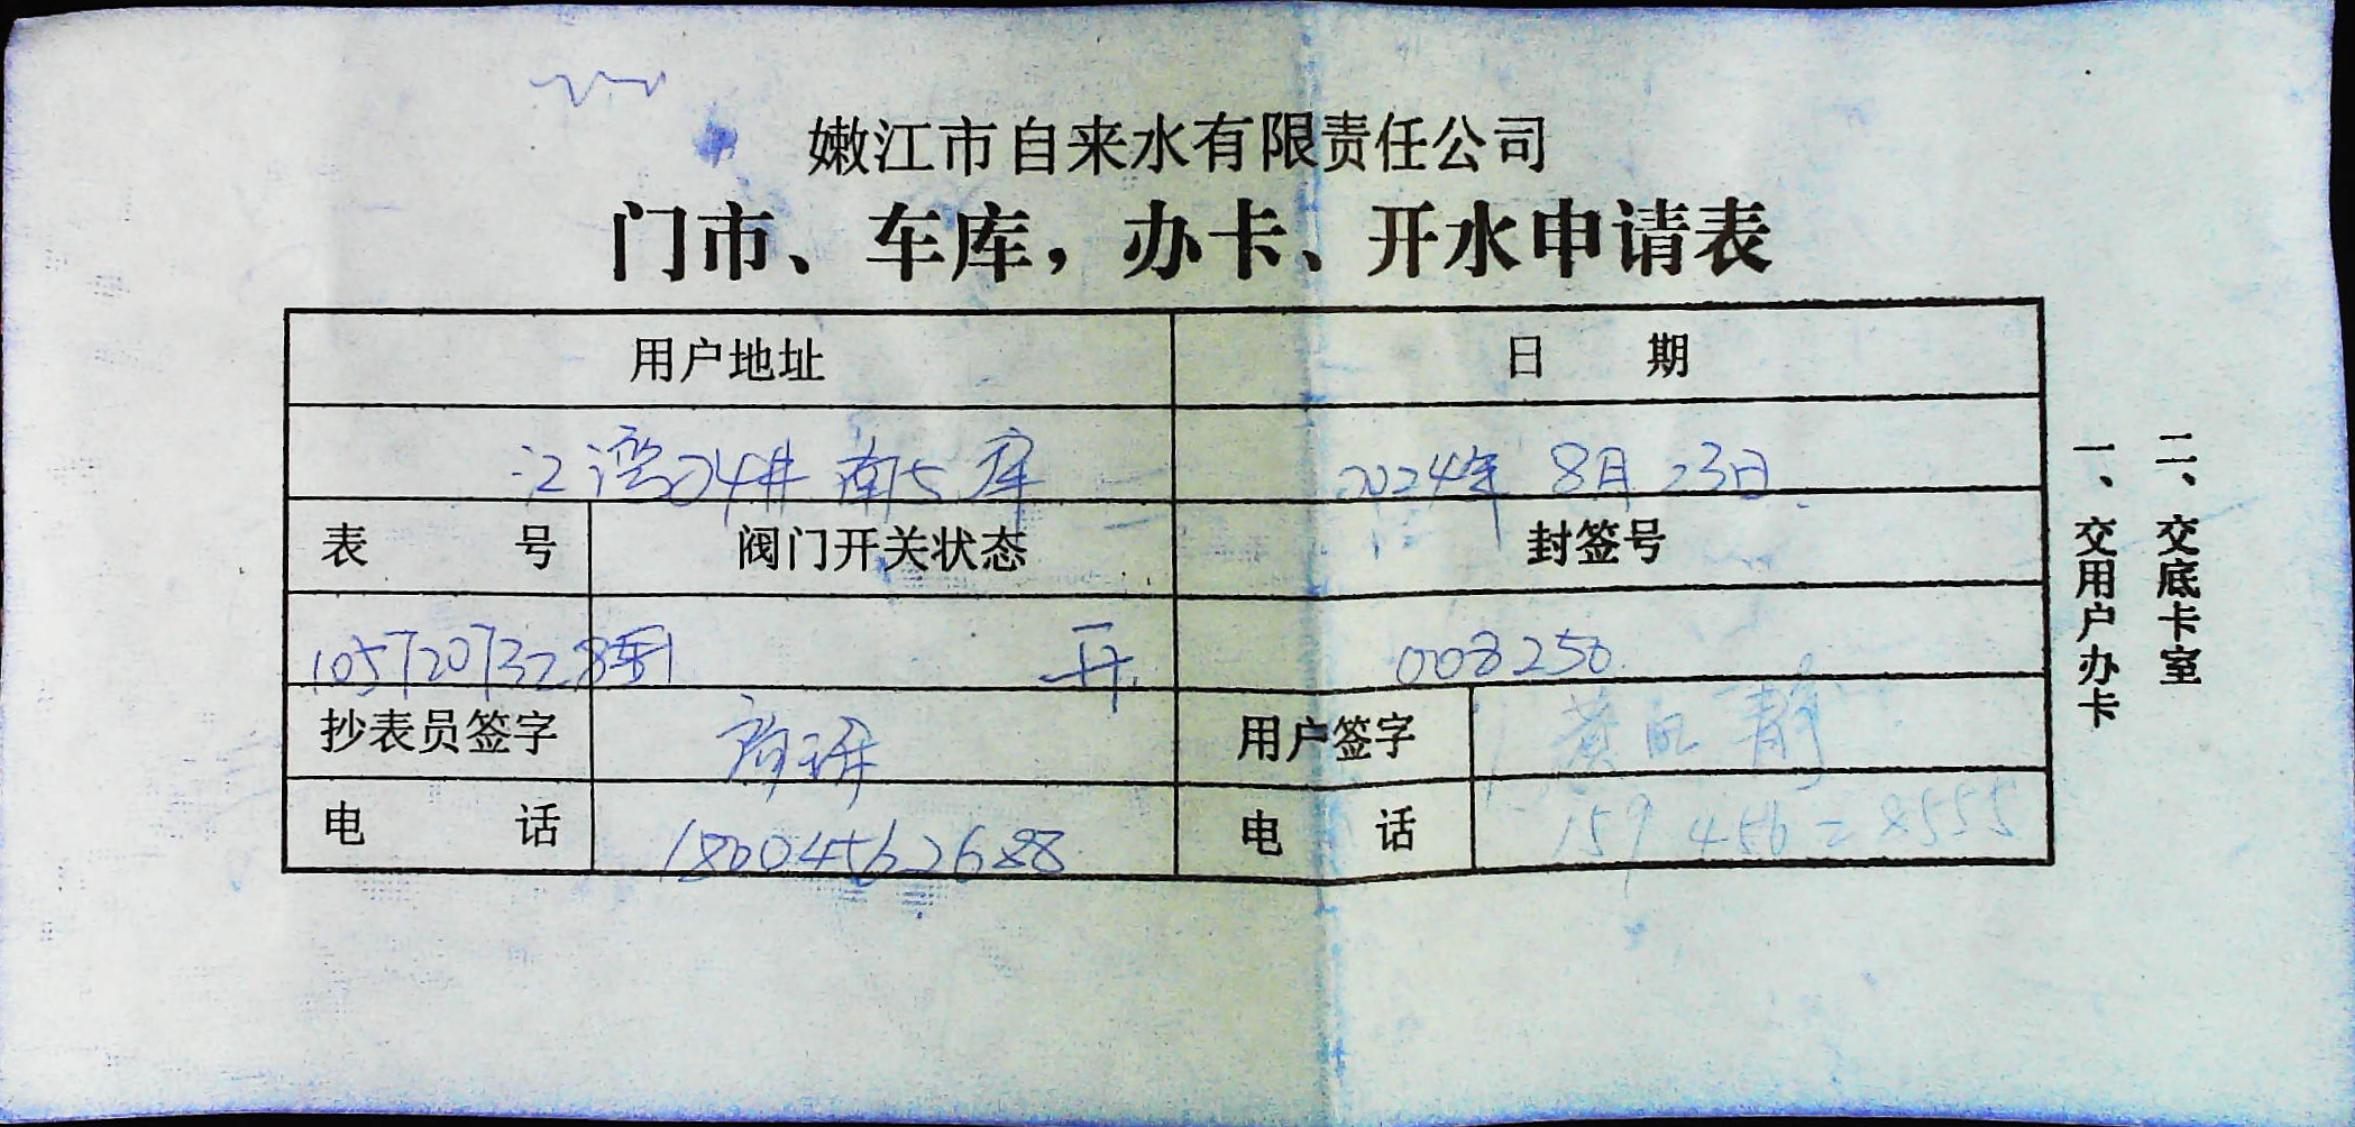 嫩江市自来水有限责任公司
门市、车库，办卡、开水申请表
用户地址 日期
江湾04井南5库 2024年8月23日
表号 阀门开关状态 封签号
1057207328 开 008250
抄表员签字 用户签字 黄 静
电话 18004562688 电话 159 4562 8555
一、交用户办卡
二、交底卡室